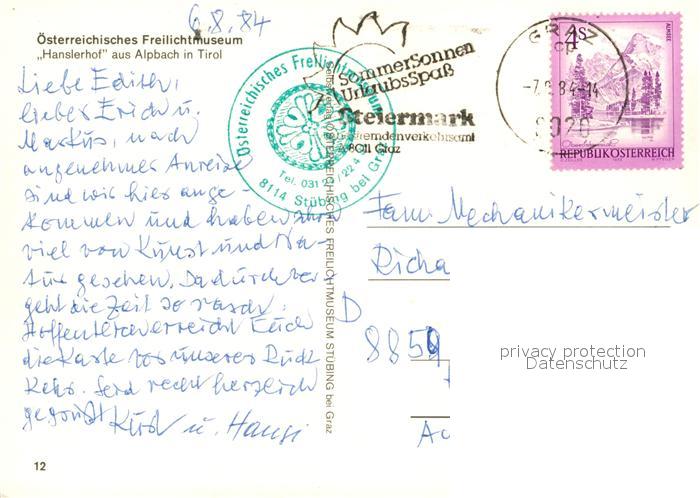 6.8.84
Österreichisches Freilichtmuseum
„Hanslerhof" aus Alpbach in Tirol
Liebe Edith,
lieber Erich u.
Markus, nach
angenehmer Anreise
sind wir hier ange-
kommen und haben schon
viel von Kunst und Na-
tur gesehen. Dadurch ver-
geht die Zeit so rasch.
Hoffentlich erreicht Euch
die Karte vor unserer Rück-
kehr. Seid recht herzlich
gegrüßt Kurt u. Hansi
12
Österreichisches Freilichtmuseum
Tel. 031
22 4
8114 Stübing bei Graz
ÖSTERREICHISCHES FREILICHTMUSEUM STÜBING bei Graz
SommerSonnen
UrlaubsSpaß
Steiermark
Fremdenverkehrsamt
A-8011 Graz
GRAZ
-7.8.84-14
8020
4S
ALMSEE
REPUBLIK ÖSTERREICH
Fam. Mechanikermeister
Richa
D
8859
privacy protection
Datenschutz